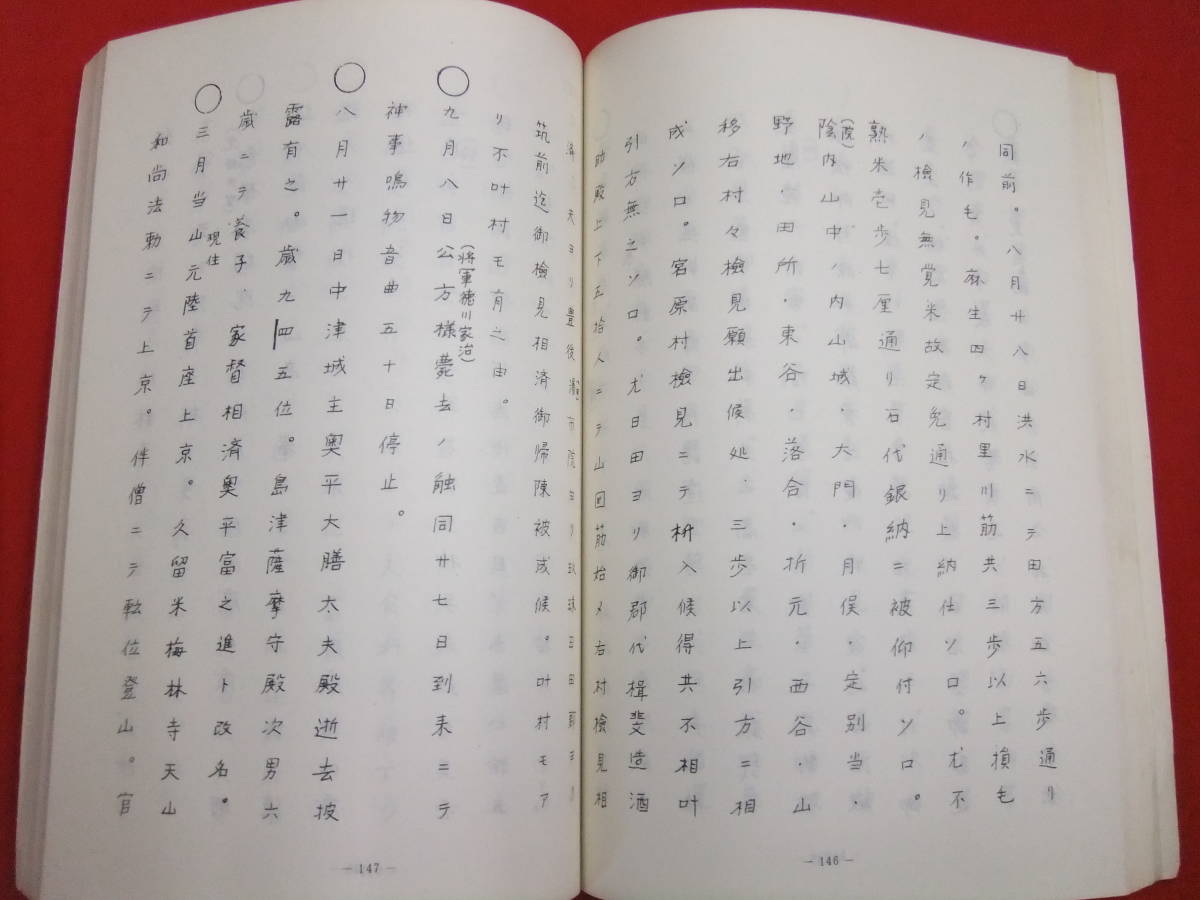 〇同前。八月廿八日洪水ニテ田方五六歩通リ
ハ作毛。麻生四ケ村里川筋共三歩以上損毛
ハ検見無覚米故定免通リ上納仕ソロ。尤不
熟米壱歩七厘通リ石代銀納ニ被仰付ソロ。
陰(院)内山中ノ内山城・大門・月俣・定別当・
野地・田所・東谷・落合・折元・西谷・山
移右村々検見願出候処、三歩以上引方ニ相
成ソロ。宮原村検見ニテ枡入候得共不相叶
引方無之ソロ。尤日田ヨリ御郡代楫斐造酒
助殿上下五拾人ニテ山回筋始メ右村検見相
済、夫ヨリ豊後
筑前迄御検見相済御帰陳被成候。叶村モア
リ不叶村モ有之由。
〇九月八日公方様(将軍徳川家治)薨去ノ触同廿七日到来ニテ
神事鳴物音曲五十日停止。
〇八月廿一日中津城主奥平大膳太夫殿逝去披
露有之。歳九四五位。島津薩摩守殿次男六
歳ニテ養子、家督相済奥平富之進ト改名。
〇三月当山現住元陸首座上京。久留米梅林寺天山
和尚法勅ニテ上京。伴僧ニテ転位登山。官
— 146 —
— 147 —